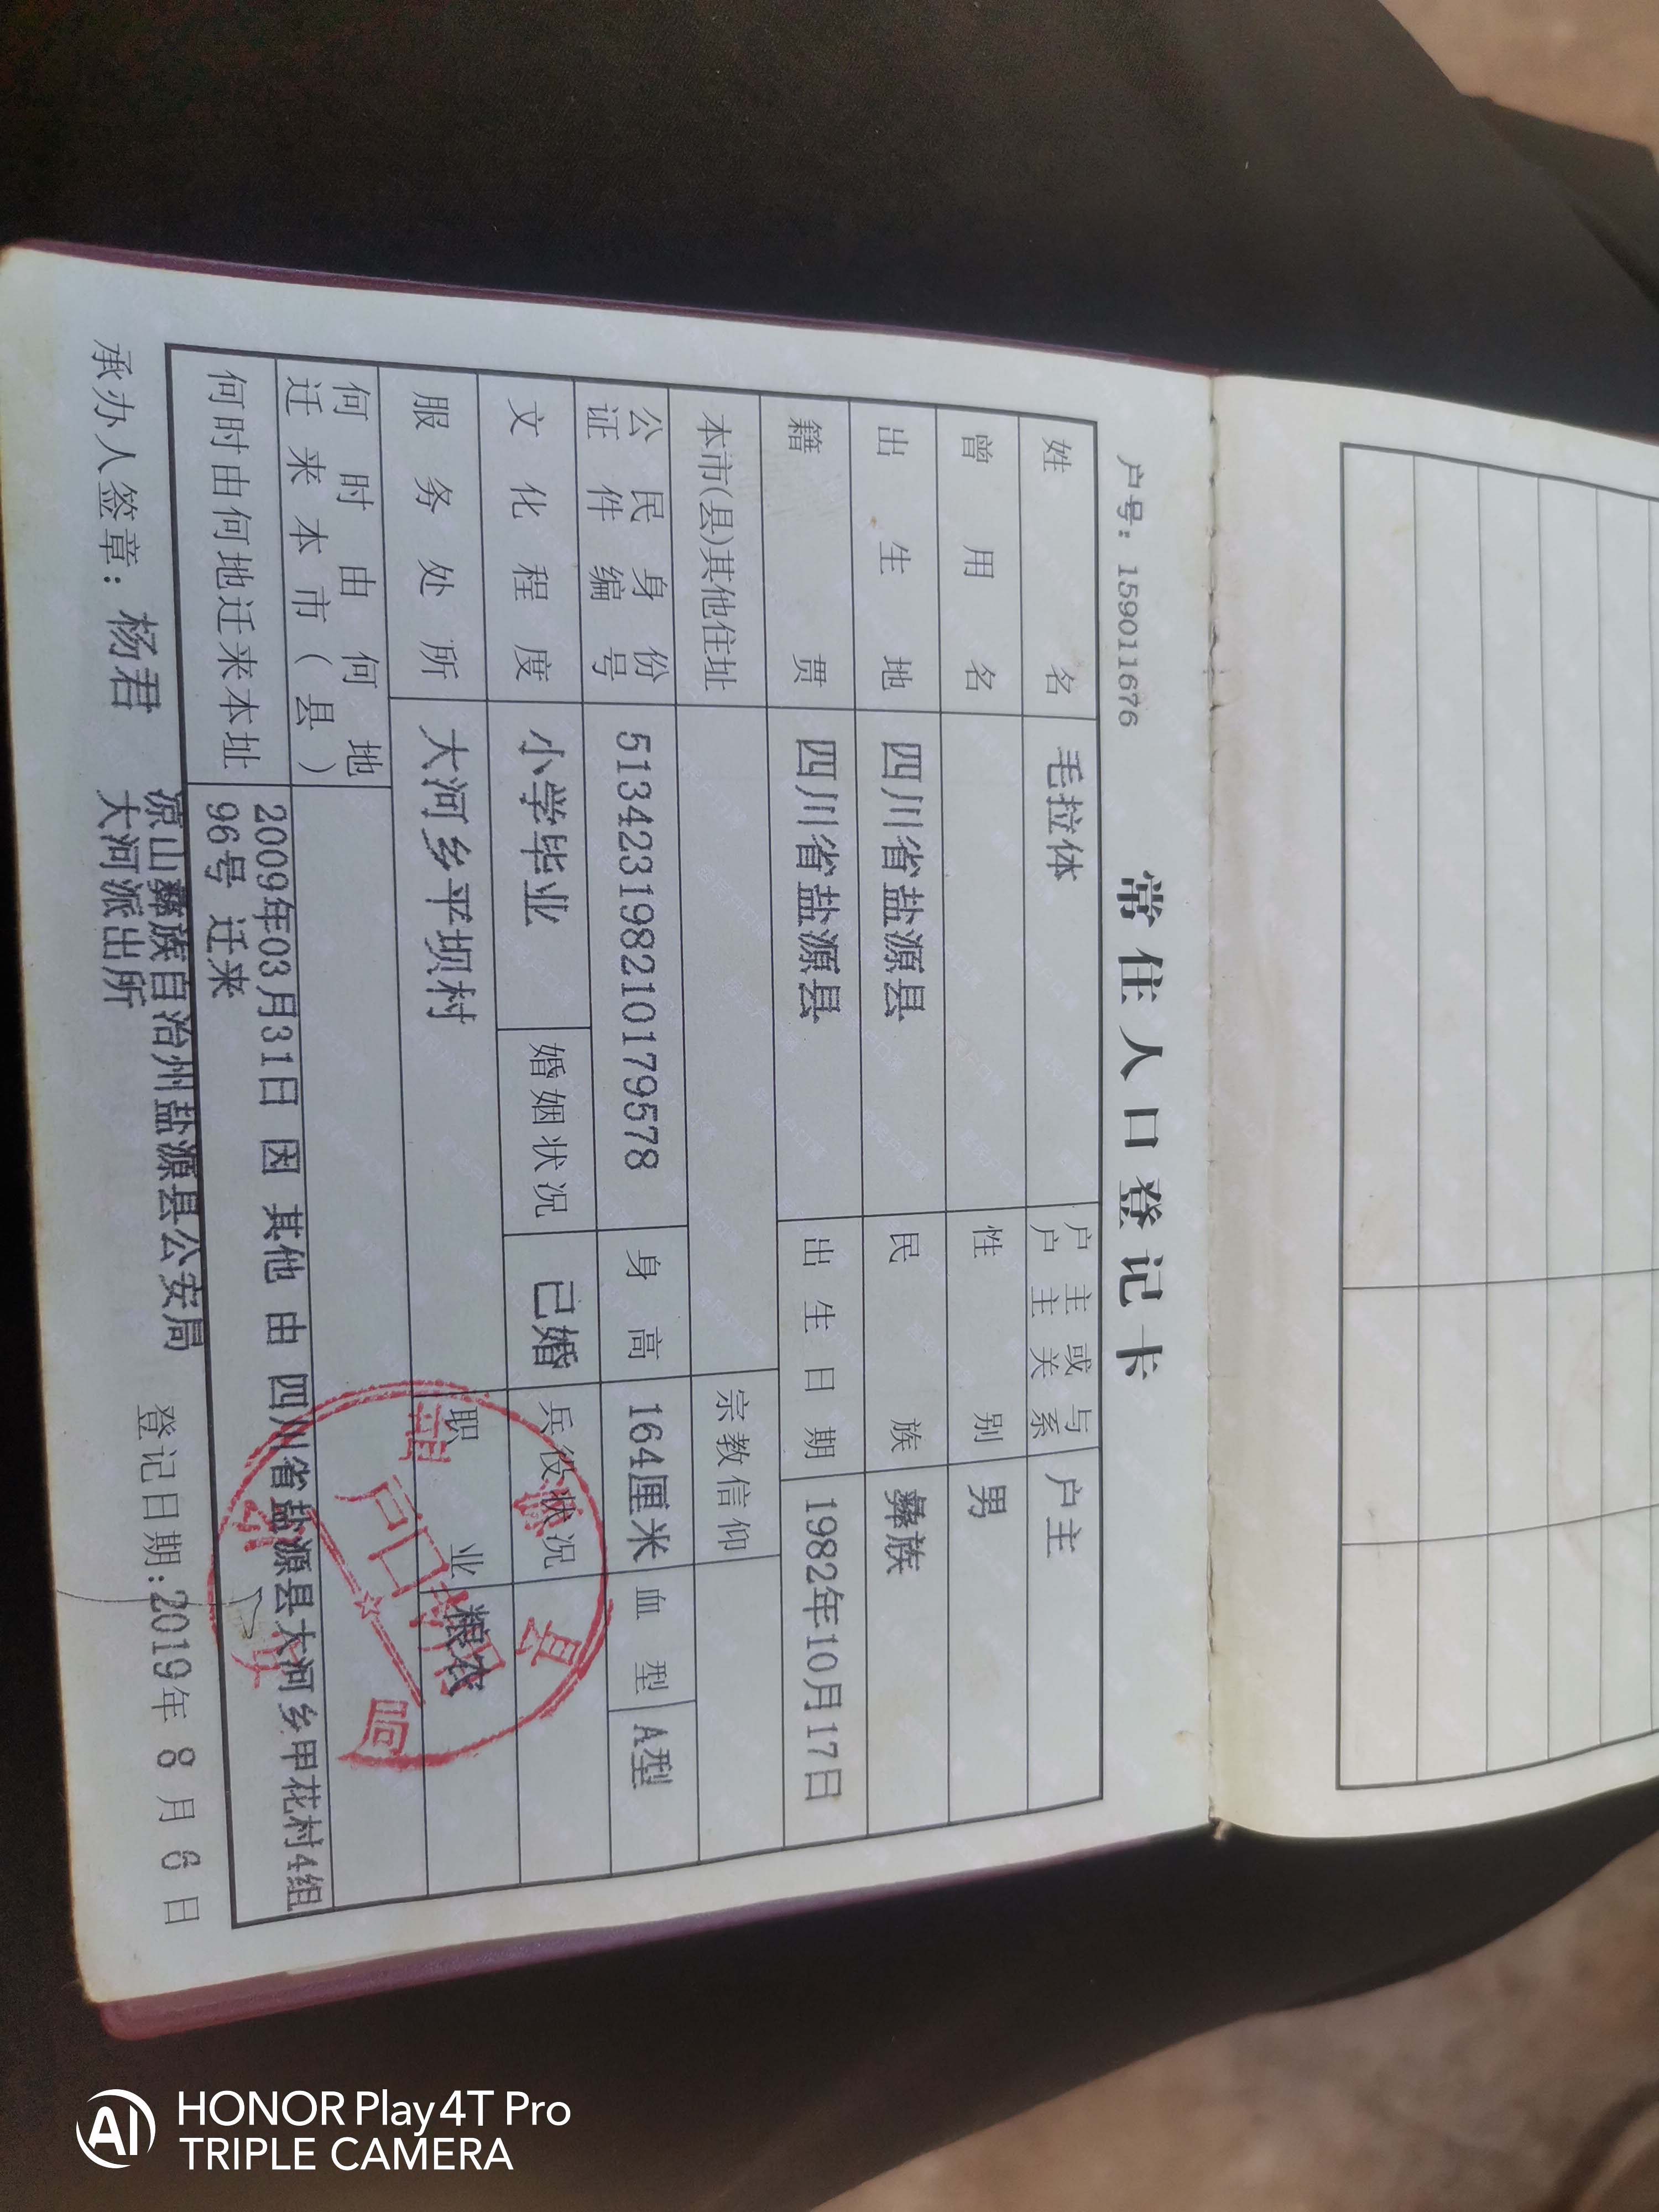 户号：159011676
常住人口登记卡
姓名 毛拉体 户主或与户主关系 户主
曾用名 性别 男
出生地 四川省盐源县 民族 彝族
籍贯 四川省盐源县 出生日期 1982年10月17日
本市(县)其他住址 宗教信仰
公民身份证件编号 513423198210179578 身高 164厘米 血型 A型
文化程度 小学毕业 婚姻状况 已婚 兵役状况
服务处所 大河乡平坝村 职业 粮农
何时由何地迁来本市(县)
何时由何地迁来本址 2009年03月31日 因 其他 由 四川省盐源县大河乡甲花村4组
96号 迁来
承办人签章：杨君 凉山彝族自治州盐源县公安局
大河派出所
登记日期：2019年8月6日
盐源县公安局
户口专用
HONOR Play4T Pro
AI TRIPLE CAMERA